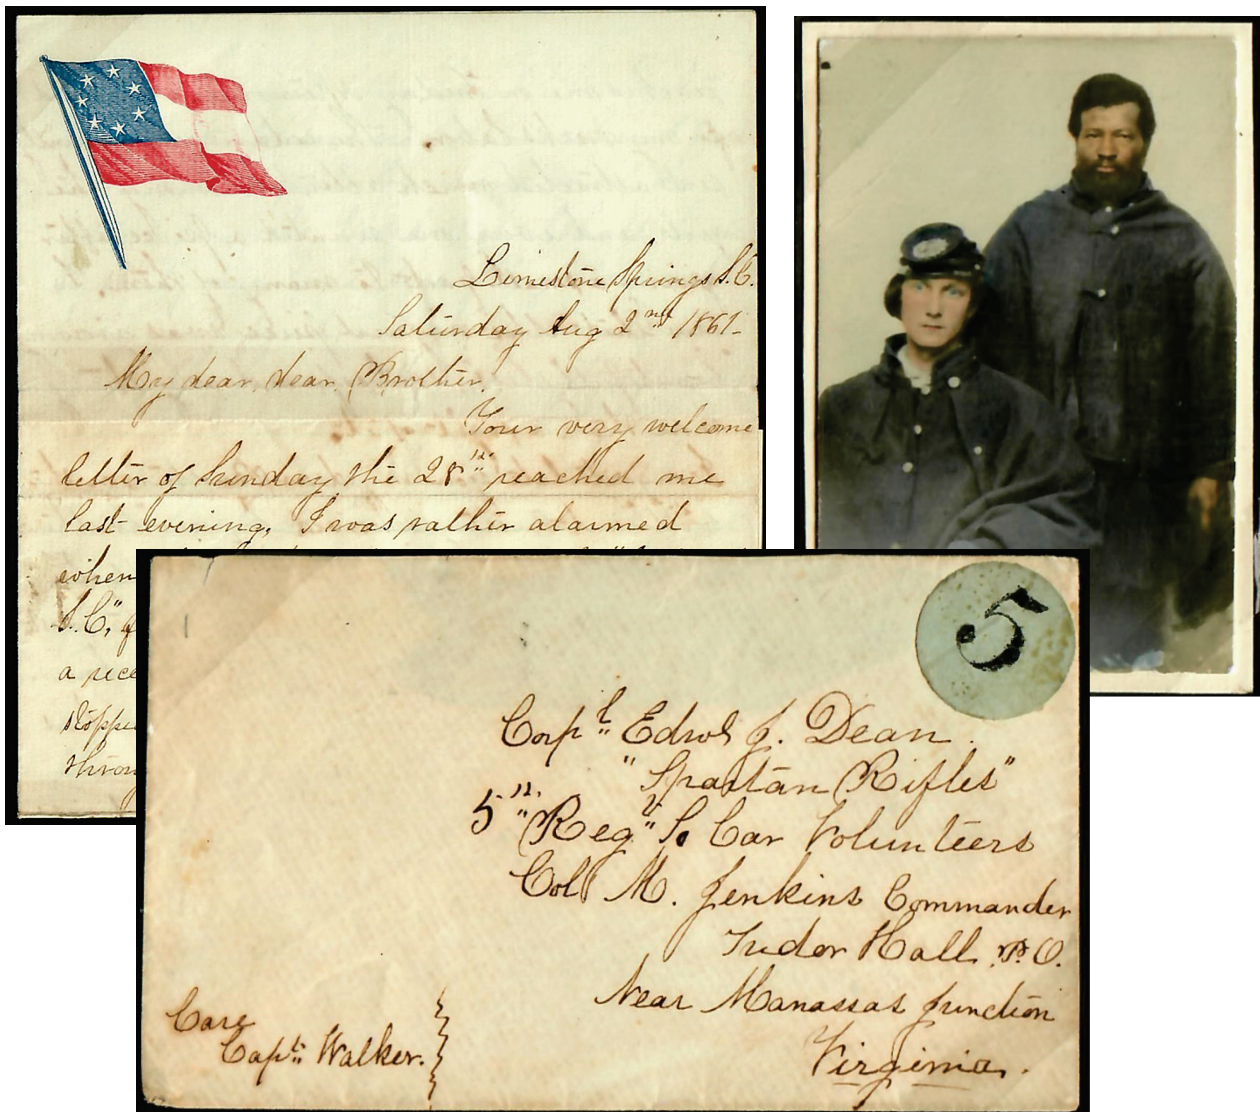 Limestone Springs S.C.
Saturday Aug 2nd 1861-
My dear, dear Brother,
Your very welcome
letter of Sunday the 28th reached me
last evening. I was rather alarmed
when
S.C",
a
stopped
throug
5
Corpl Edwd J. Dean.
"Spartan Rifles"
5th Regt So Car Volunteers
Col M. Jenkins Commander
Tudor Hall P.O.
Near Manassas Junction
Virginia.
Care
Capt. Walker.